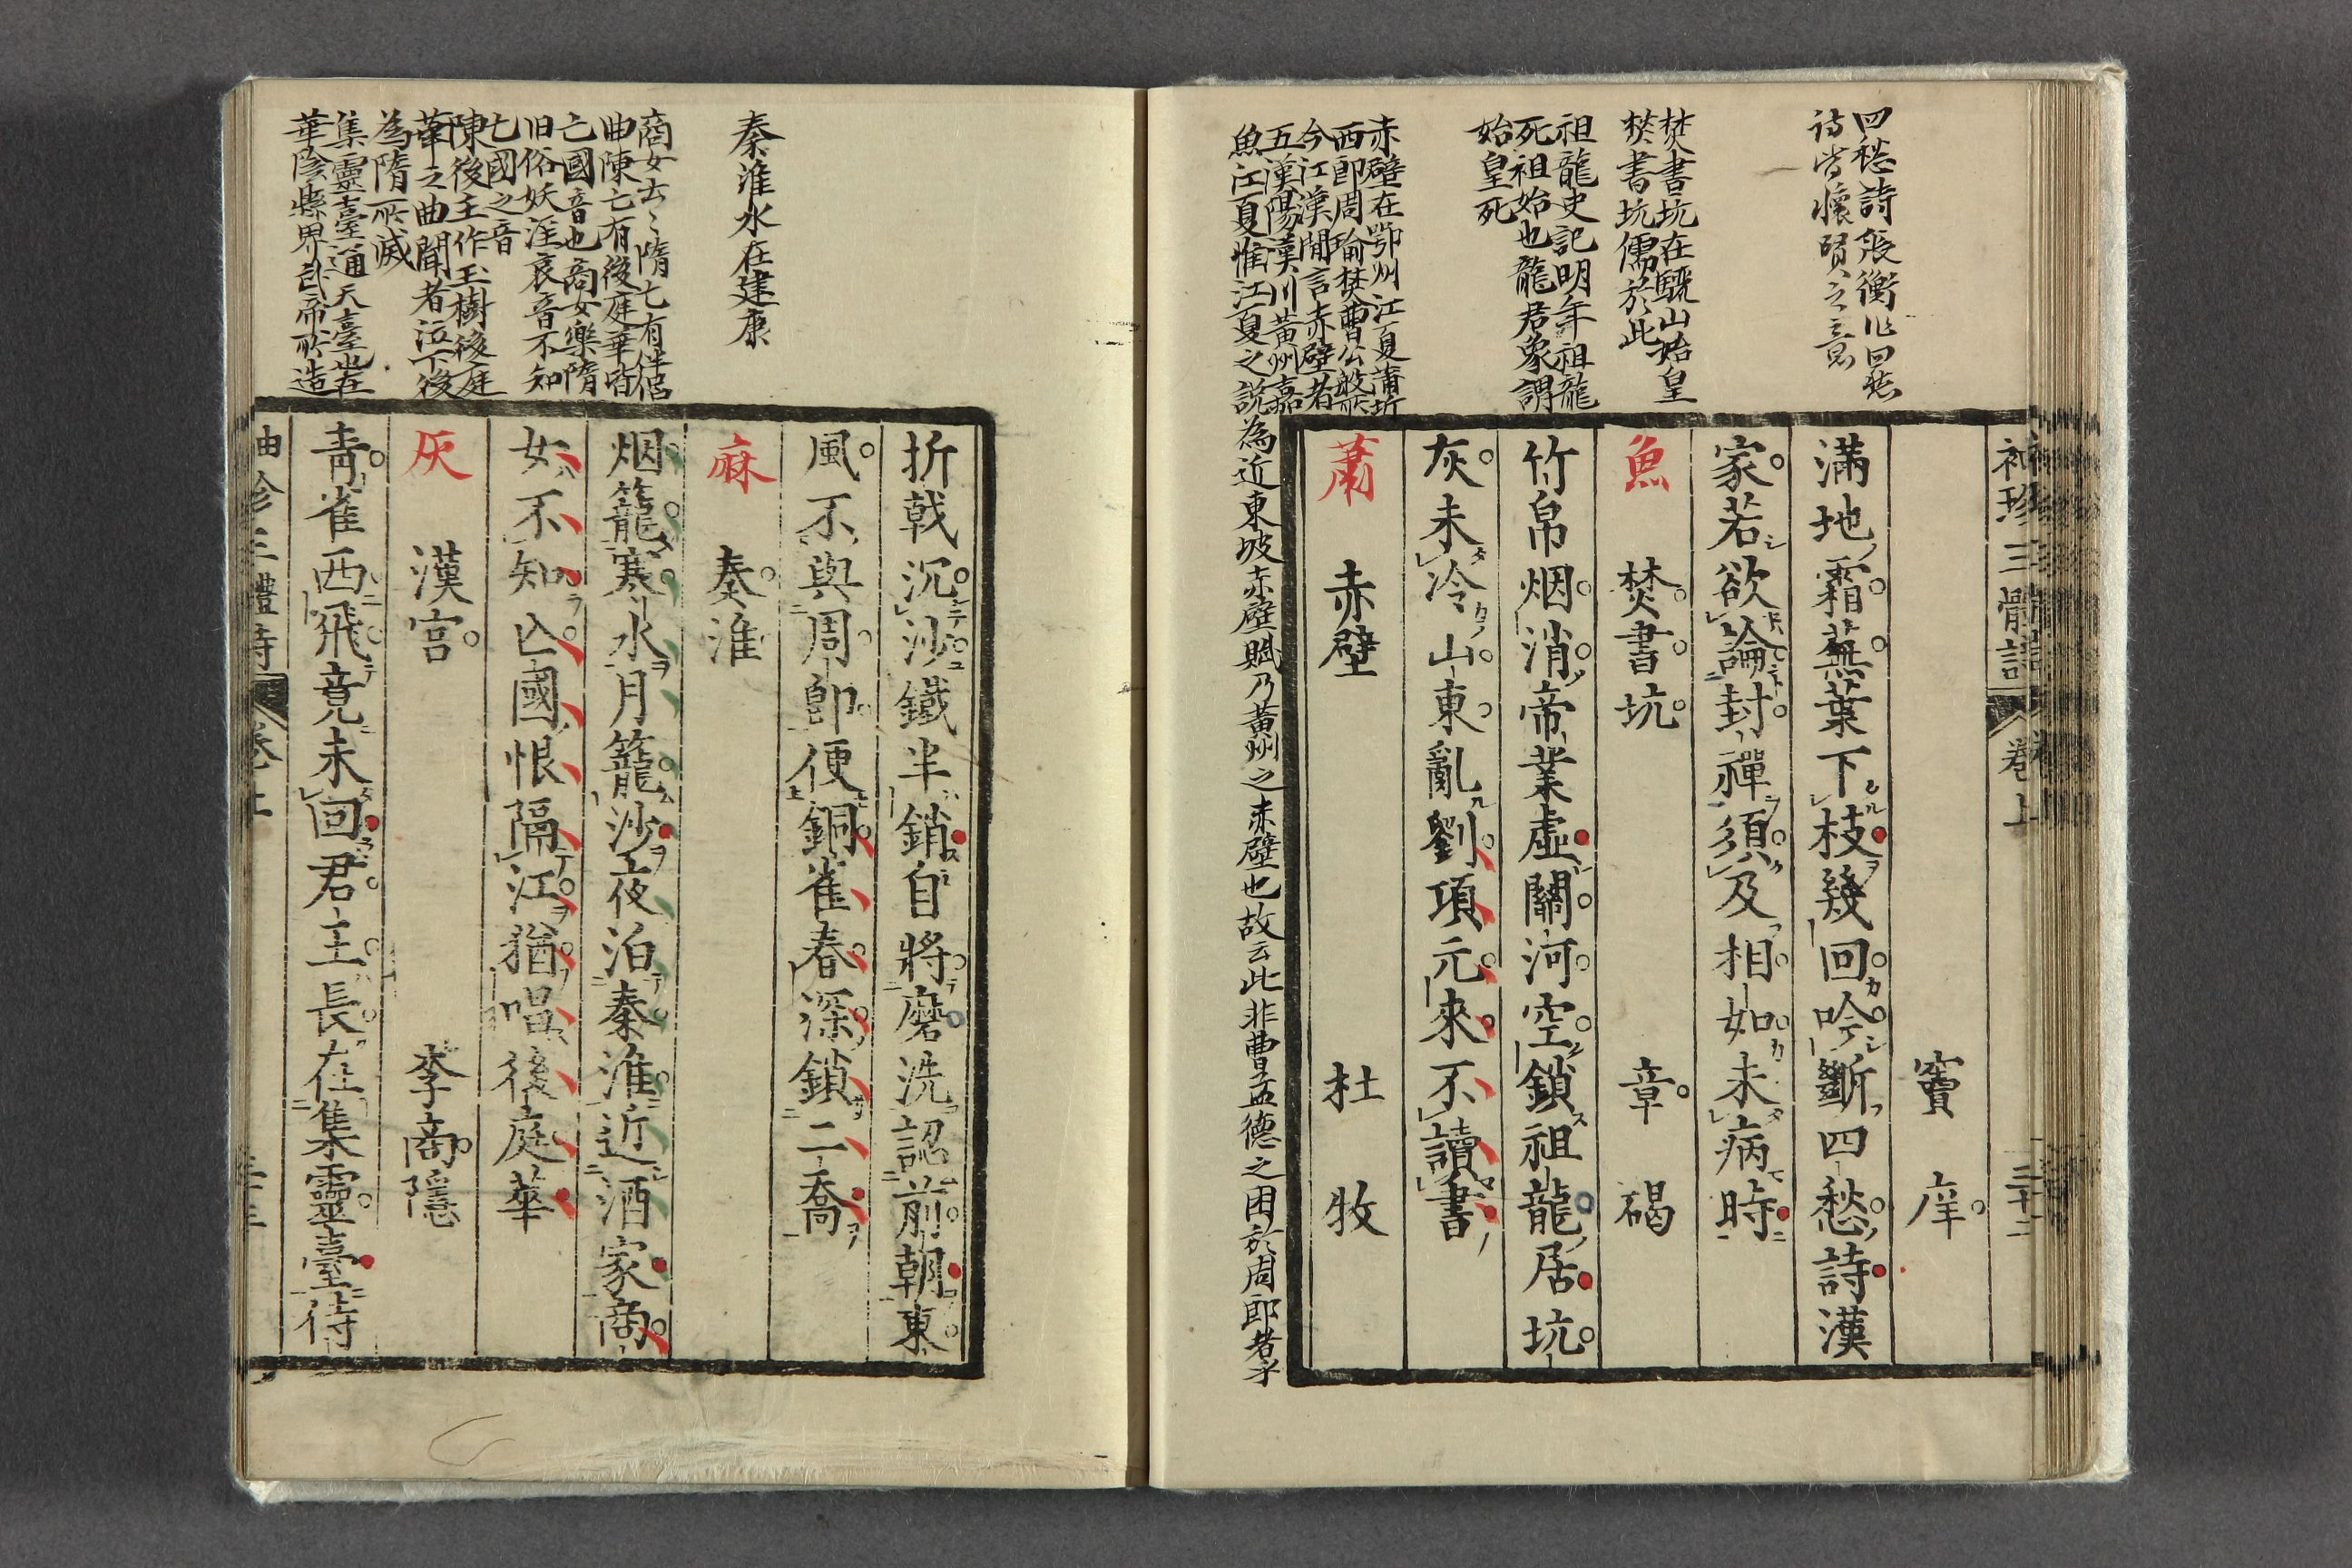 四愁詩張衡作四愁
詩皆懷賢之意
焚書坑在驪山始皇
焚書坑儒於此
祖龍史記明年祖龍
死祖始也龍君象謂
始皇死
赤壁在鄂州江夏蒲圻
西即周瑜焚曹公盤所
今江漢間言赤壁者
五漢陽漢川黃州嘉
魚江夏惟江夏之說為近東坡赤壁賦乃黃州之赤壁也故云此非曹孟德之困於周郎者乎
袖珍三體詩 卷上 三十二
竇庠
滿地霜蕪葉下枝幾回吟斷四愁詩漢
家若欲論封禪須及相如未病時
魚 焚書坑 章碣
竹帛烟消帝業虛關河空鎖祖龍居坑
灰未冷山東亂劉項元來不讀書
蕭 赤壁 杜牧
秦淮水在建康
商女云々隋亡有伴侶
曲陳亡有後庭華皆
亡國音也商女樂隋
旧俗妖淫哀音不知
亡國之音
陳後主作玉樹後庭
華之曲聞者泣下後
為隋所滅
集靈臺通天臺也在
華陰縣界武帝所造
折戟沉沙鐵半銷自將磨洗認前朝東
風不與周郎便銅雀春深鎖二喬
麻 秦淮
烟籠寒水月籠沙夜泊秦淮近酒家商
女不知亡國恨隔江猶唱後庭華
灰 漢宮 李商隱
青雀西飛竟未回君王長在集靈臺侍